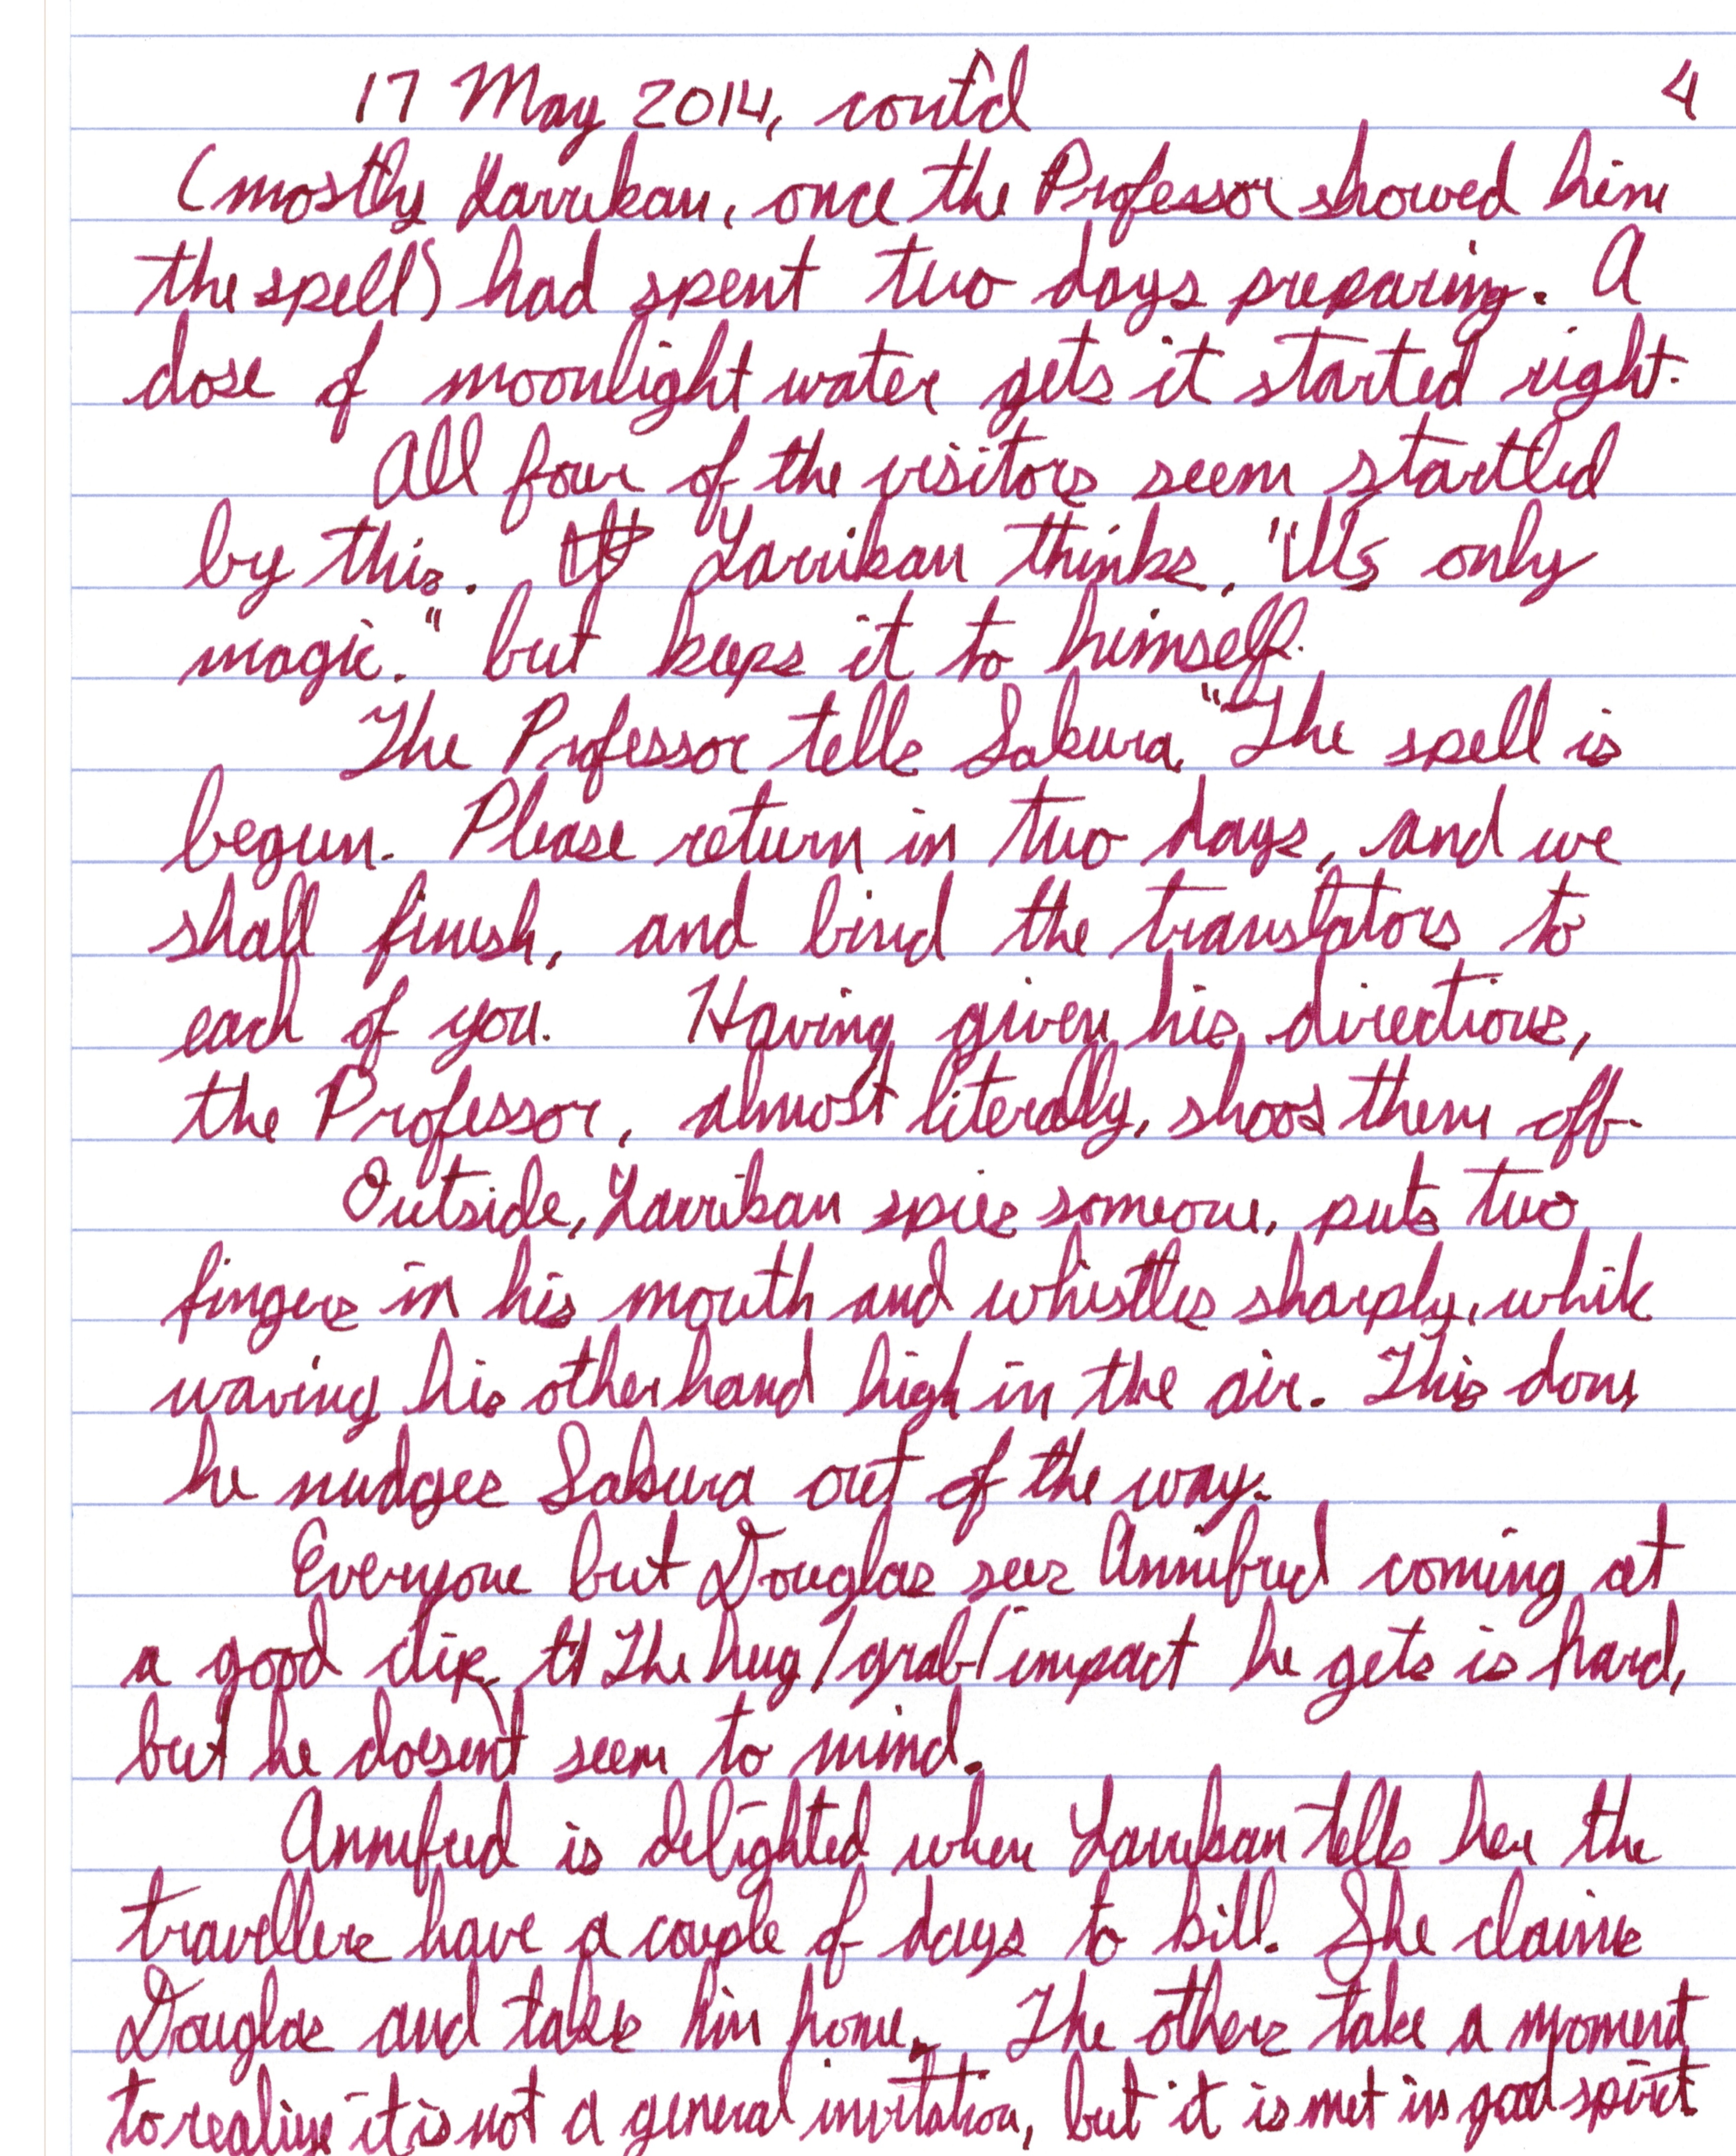 17 May 2014, cont'd 4
(mostly Larrikan, once the Professor showed him
the spell) had spent two days preparing. A
dose of moonlight water gets it started right.
All four of the visitors seem startled
by this. Larrikan thinks, "It's only
magic." but keeps it to himself.
The Professor tells Sakura, "The spell is
begun. Please return in two days, and we
shall finish, and bind the translators to
each of you. Having given his directions,
the Professor, almost literally, shoos them off.
Outside, Larrikan spies someone, puts two
fingers in his mouth and whistles sharply, while
waving his other hand high in the air. This done,
he nudges Sakura out of the way.
Everyone but Douglas sees Annifred coming at
a good clip. The hug/grab/impact he gets is hard,
but he doesn't seem to mind.
Annifred is delighted when Larrikan tells her the
travellers have a couple of days to kill. She claims
Douglas and takes him home. The others take a moment
to realize it is not a general invitation, but it is met in good spirit